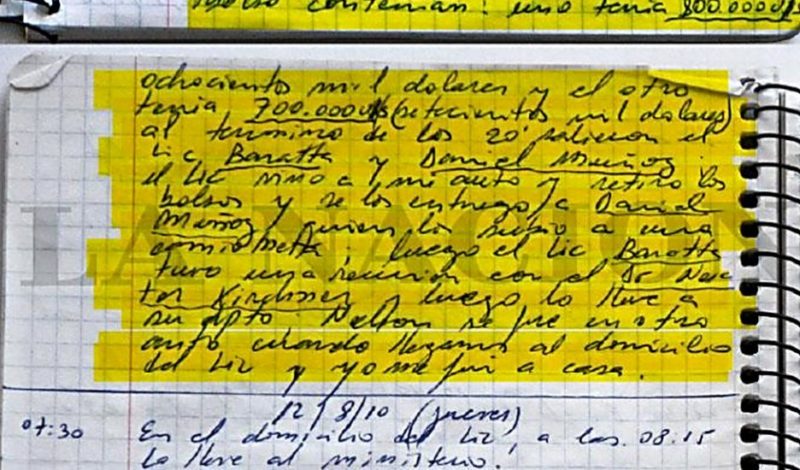 contenian: uno tenia 800.000u$s
ochocientos mil dolares y el otro
tenia 700.000u$s (setecientos mil dolares)
al termino de los 20' salieron el
Lic Baratta y Daniel Muñoz.
el Lic vino a mi auto y retiro los
bolsos y se los entrego a Daniel
Muñoz, quien los subio a una
camioneta; luego el Lic Baratta
tuvo una reunion con el Dr Nes
tor Kirchner y luego lo lleve a
su dpto. Nelson se fue en otro
auto cuando llegamos al domicilio
del Lic y yo me fui a casa.
12/8/10 (jueves)
07:30 En el domicilio del Lic, a las 08:15
lo lleve al ministerio.
LA NACION